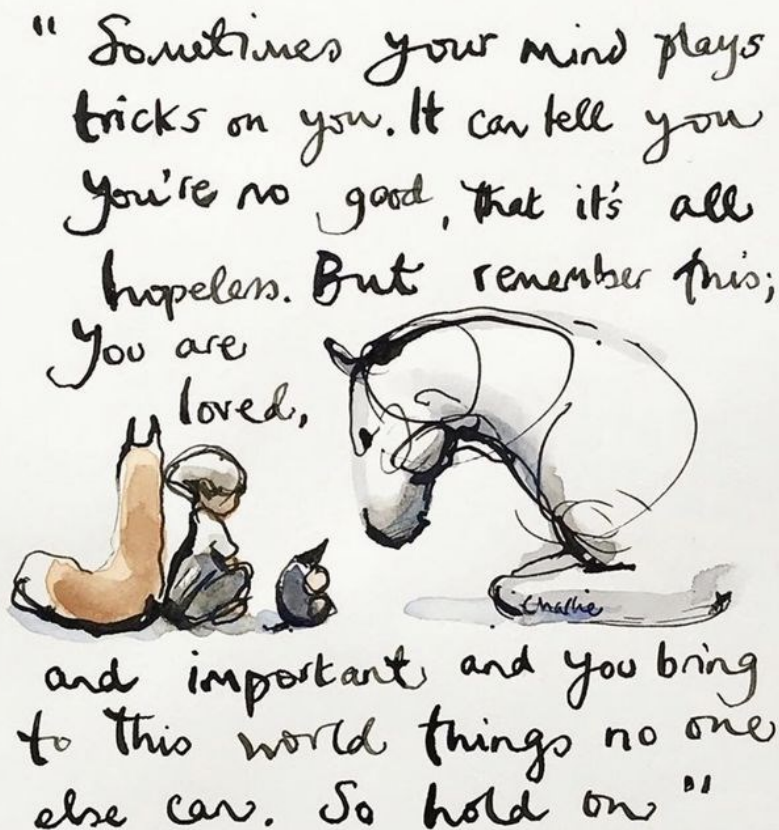 " Sometimes your mind plays
tricks on you. It can tell you
you're no good, that it's all
hopeless. But remember this;
You are
loved,
Charlie
and important and you bring
to this world things no one
else can. So hold on "